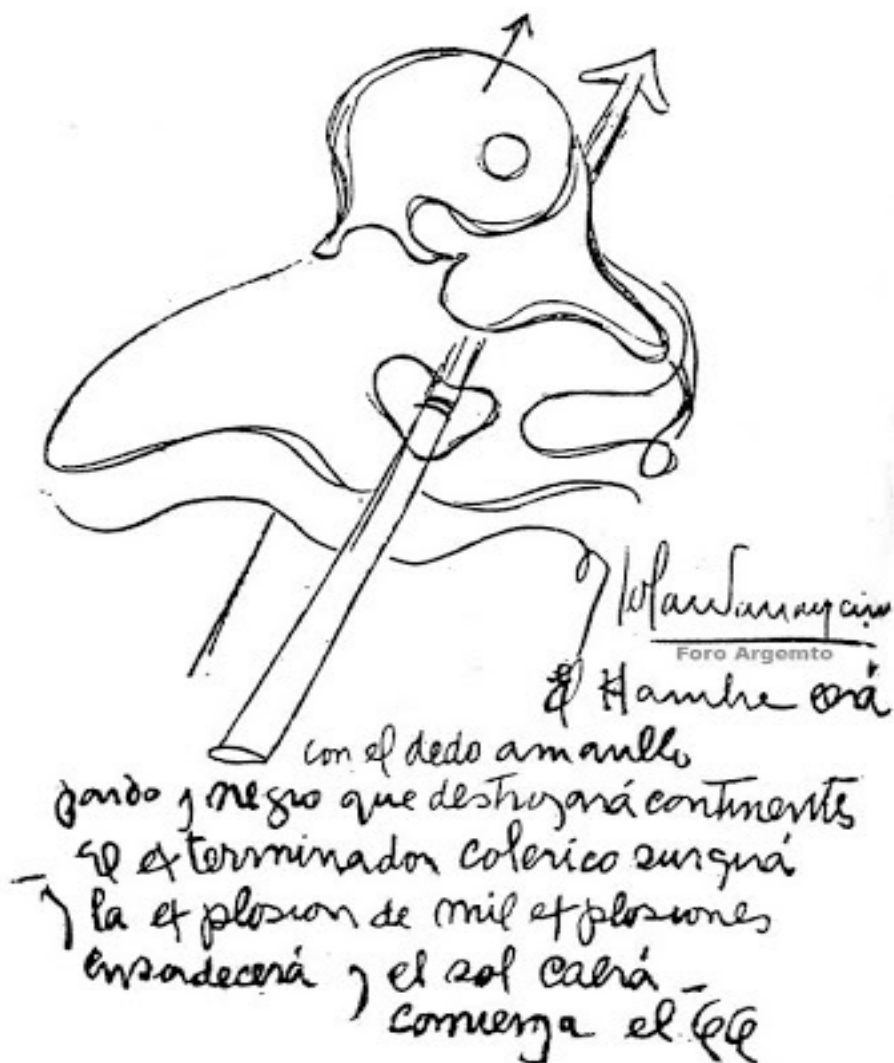 Foro Argemto
el Hambre será
con el dedo amarillo
pardo y negro que destrozará continentes
el exterminador colerico surgirá
y la explosion de mil explosiones
ensordecerá y el sol caerá
comienza el 66